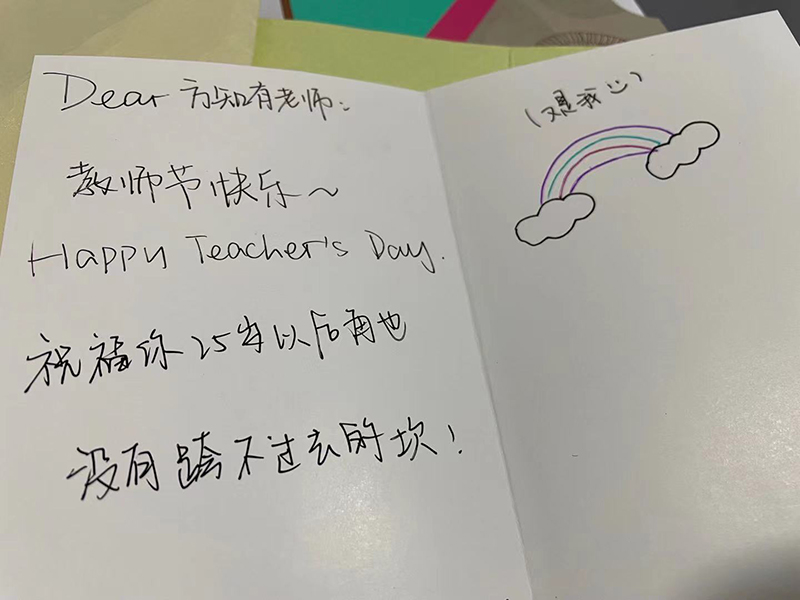 Dear 方知有老师:
教师节快乐~
Happy Teacher's Day.
祝福你25岁以后再也
没有跨不过去的坎!
(又是我☺)